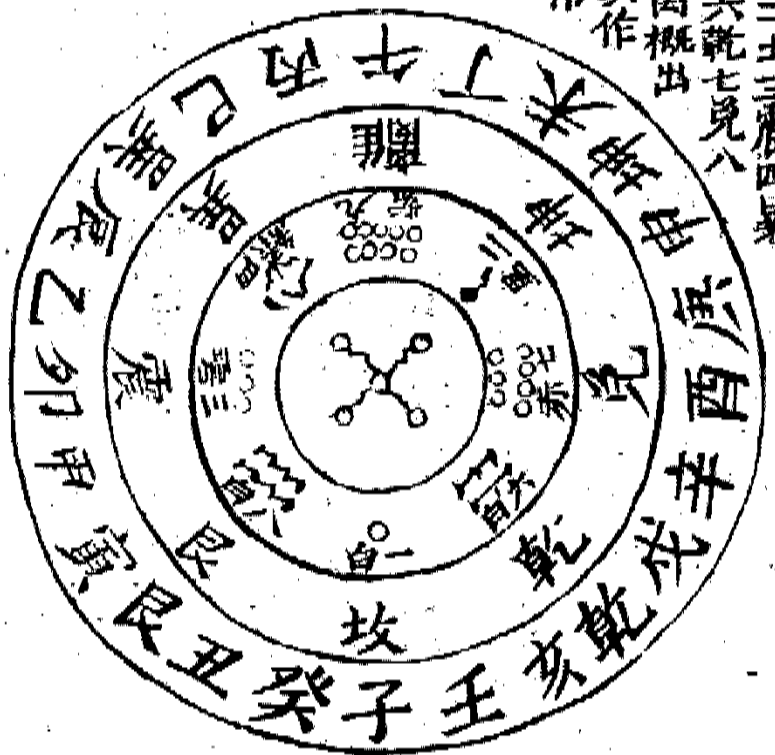 土三震四巽
六乾七兌八
圖概出
作
午丁未坤申庚酉辛戌乾亥壬子癸丑艮寅甲卯乙辰巽巳丙
離坤兌乾坎艮震巽
九紫
二黑
七赤
六白
一白
八白
三碧
四綠